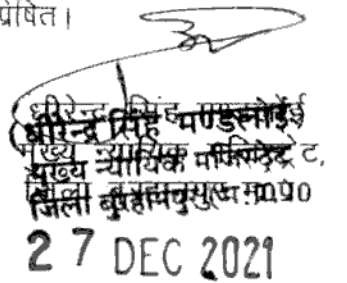 प्रेषित।
धीरेन्द्र सिंह मण्डलोई
मुख्य न्यायिक मजिस्ट्रेट,
जिला बुरहानपुर म.प्र.
27 DEC 2021